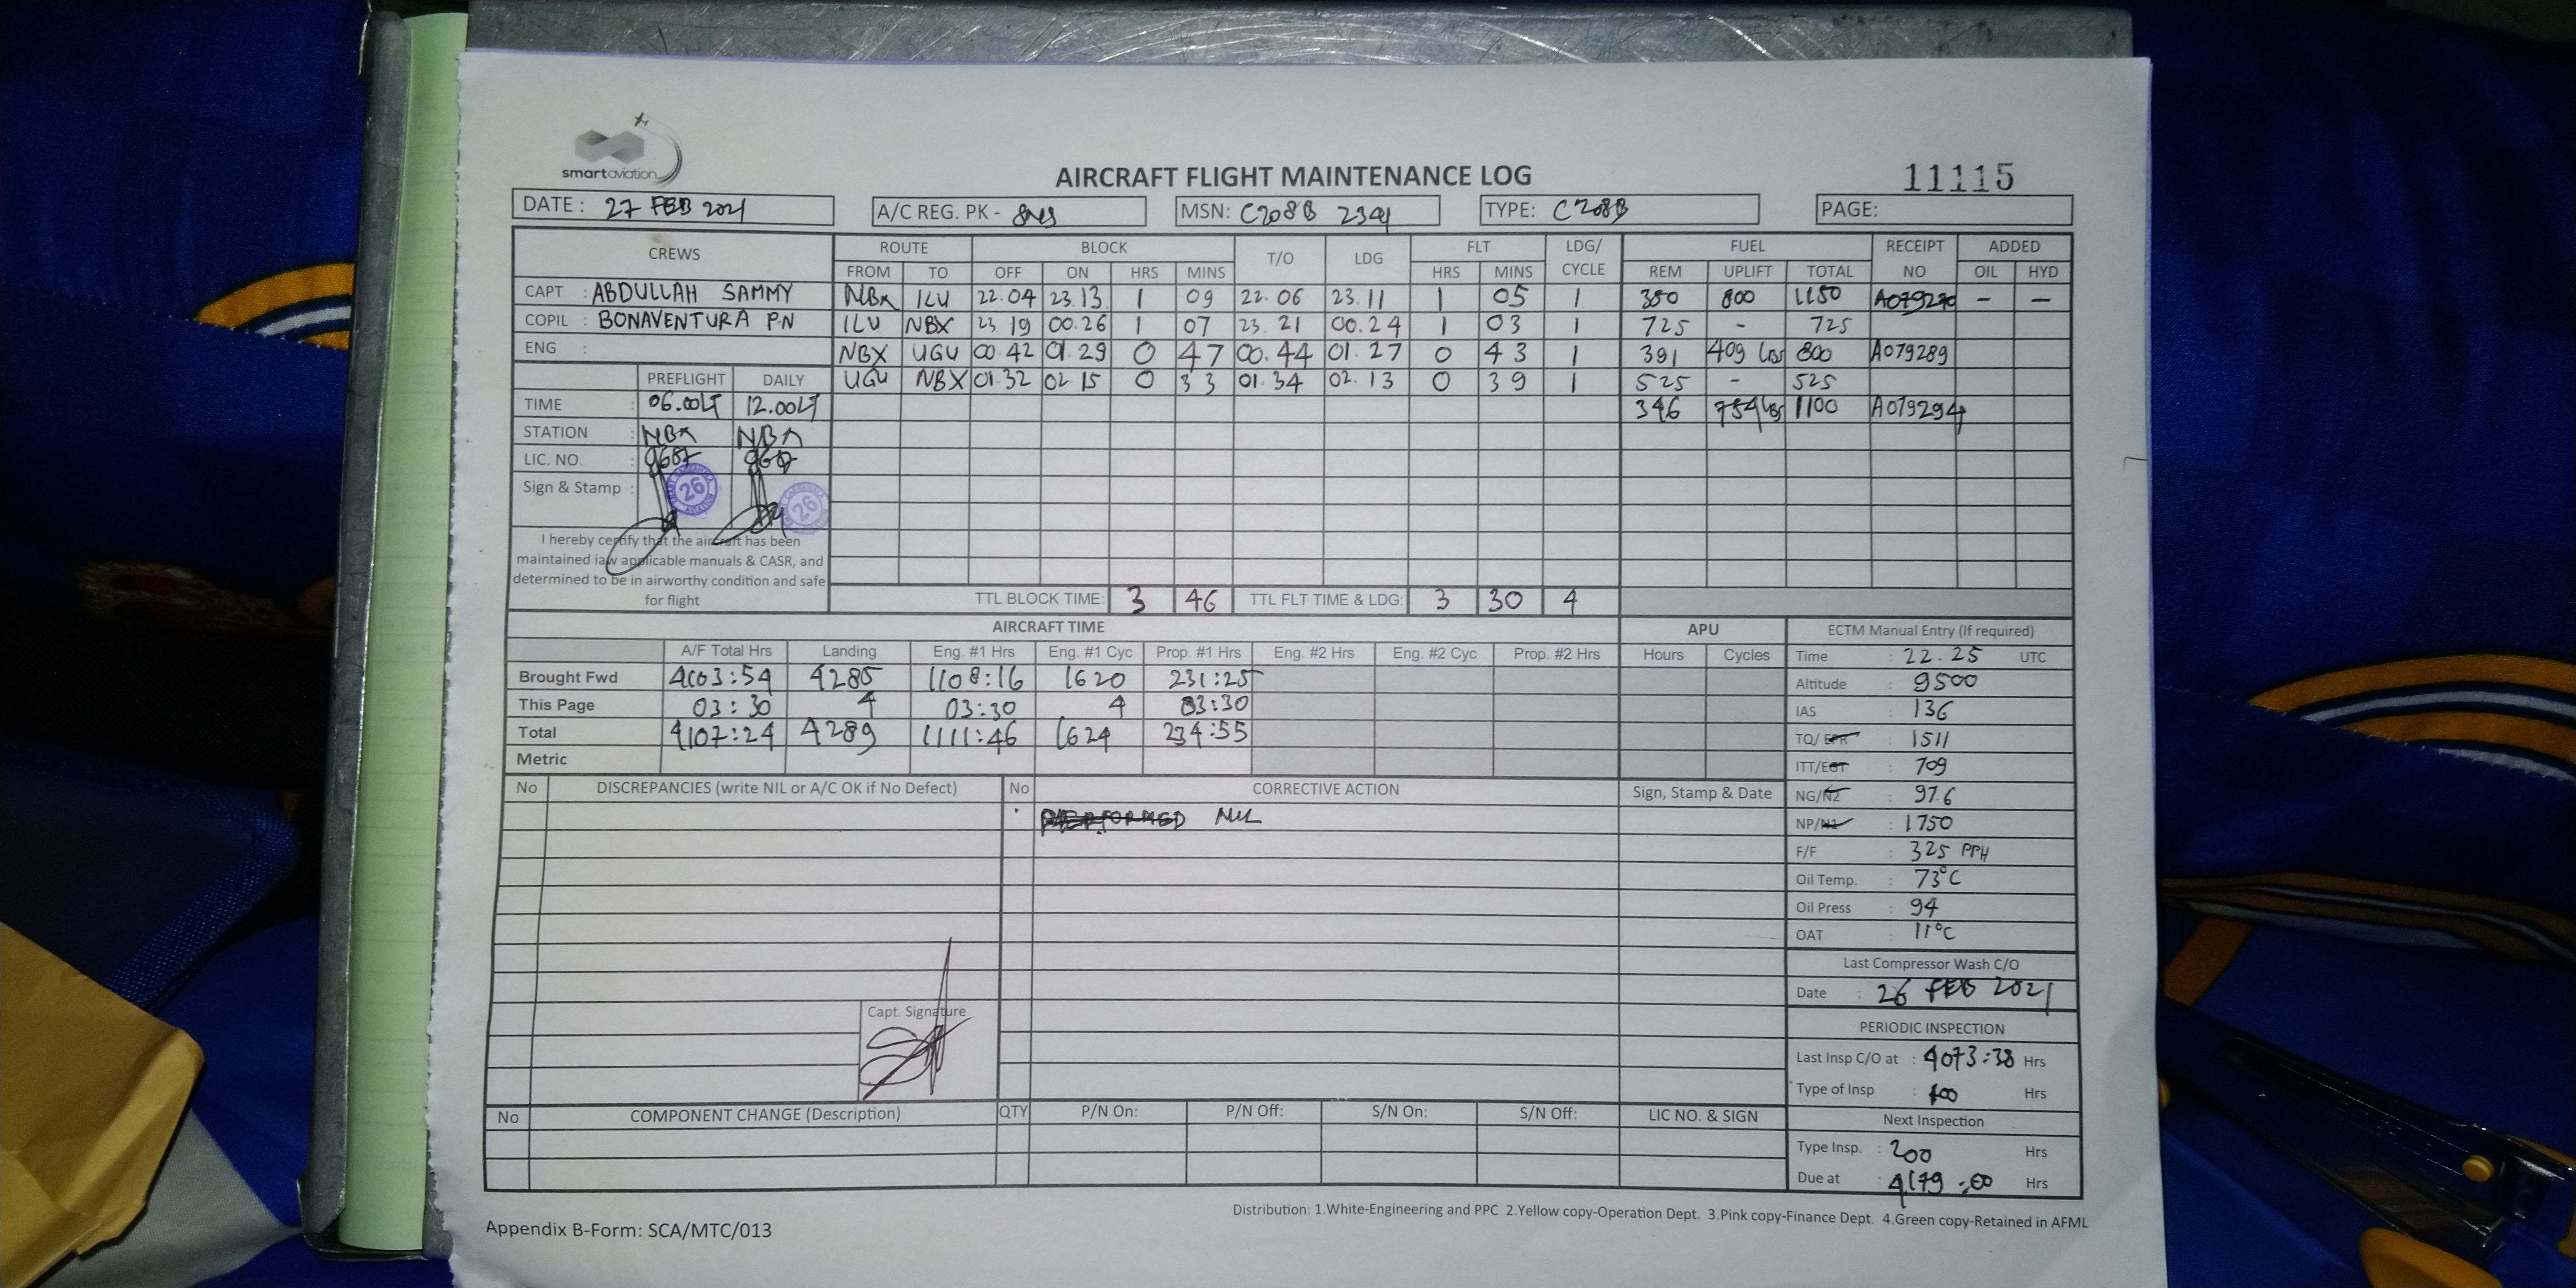 smart aviation
AIRCRAFT FLIGHT MAINTENANCE LOG
11115
DATE : 27 FEB 2021 A/C REG. PK - MSN: C208B TYPE: C208B PAGE:
CREWS ROUTE BLOCK T/O LDG FLT LDG/ CYCLE FUEL RECEIPT NO ADDED
FROM TO OFF ON HRS MINS HRS MINS REM UPLIFT TOTAL OIL HYD
CAPT : ABDULLAH SAMMY NBX ILU 22.04 23.13 1 09 22.06 23.11 1 05 1 350 800 1150 A079270 - -
COPIL : BONAVENTURA P.N ILU NBX 23 19 00.26 1 07 23.21 00.24 1 03 1 725 - 725
ENG : NBX UGU 00.42 01.29 0 47 00.44 01.27 0 43 1 391 409 LBS 800 A079289
PREFLIGHT DAILY UGU NBX 01.32 02.15 0 33 01.34 02.13 0 39 1 525 - 525
TIME : 06.00LT 12.00LT 346 754 LBS 1100 A079294
STATION : NBX NBX
LIC. NO. : 9687
Sign & Stamp : 26 26
I hereby certify that the aircraft has been
maintained iaw applicable manuals & CASR, and
determined to be in airworthy condition and safe
for flight
TTL BLOCK TIME: 3 46 TTL FLT TIME & LDG: 3 30 4
AIRCRAFT TIME APU ECTM Manual Entry (If required)
A/F Total Hrs Landing Eng. #1 Hrs Eng. #1 Cyc Prop. #1 Hrs Eng. #2 Hrs Eng. #2 Cyc Prop. #2 Hrs Hours Cycles Time : 22.25 UTC
Brought Fwd 4103:54 4285 1108:16 1620 231:25 Altitude : 9500
This Page 03:30 4 03:30 4 03:30 IAS : 136
Total 4107:24 4289 1111:46 1624 234:55 TQ/EPR : 1511
Metric ITT/EGT : 709
No DISCREPANCIES (write NIL or A/C OK if No Defect) No CORRECTIVE ACTION Sign, Stamp & Date NG/N2 : 97.6
PERFORMED NIL NP/N1 : 1750
F/F : 325 PPH
Oil Temp. : 73°C
Oil Press : 94
OAT : 11°C
Last Compressor Wash C/O
Date : 26 FEB 2021
Capt. Signature
PERIODIC INSPECTION
Last Insp C/O at : 4073:38 Hrs
Type of Insp : 100 Hrs
No COMPONENT CHANGE (Description) QTY P/N On: P/N Off: S/N On: S/N Off: LIC NO. & SIGN Next Inspection
Type Insp. : 200 Hrs
Due at : 4179:00 Hrs
Appendix B-Form: SCA/MTC/013
Distribution: 1.White-Engineering and PPC 2.Yellow copy-Operation Dept. 3.Pink copy-Finance Dept. 4.Green copy-Retained in AFML